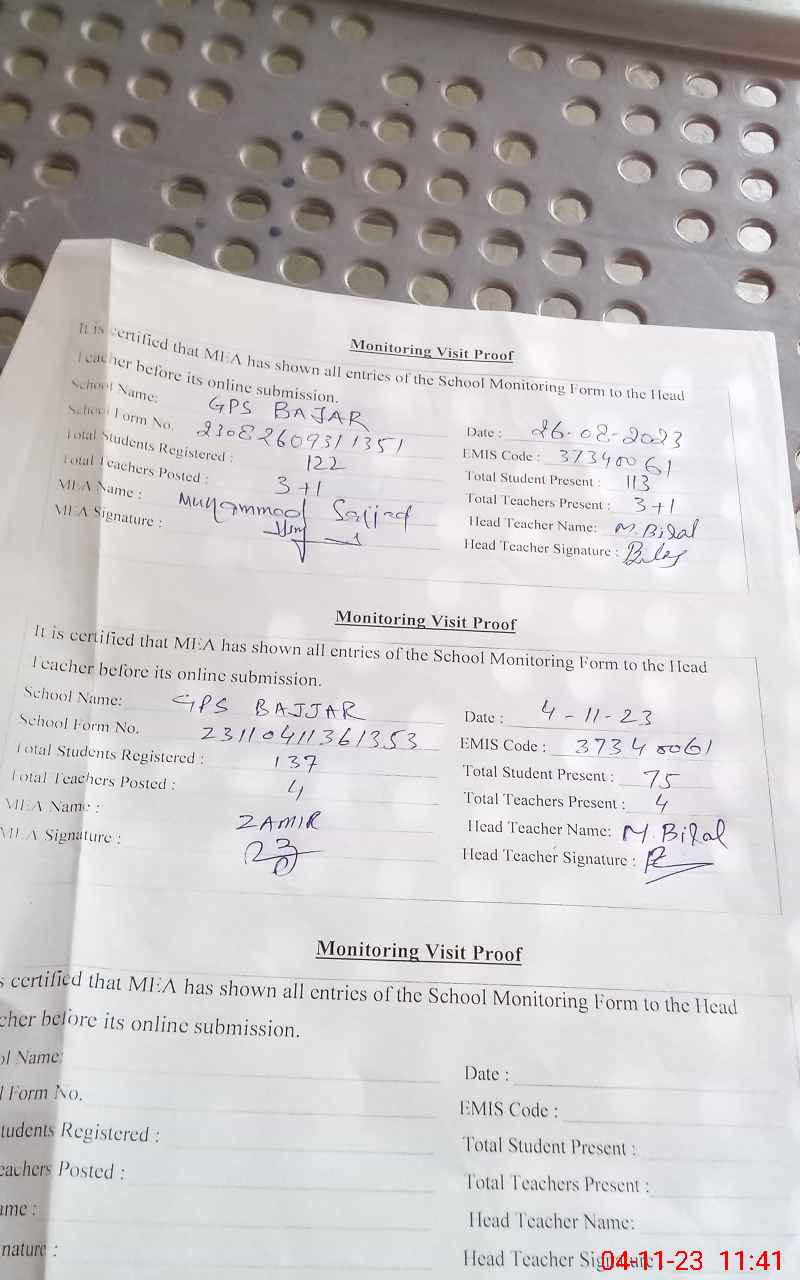 Monitoring Visit Proof
It is certified that MEA has shown all entries of the School Monitoring Form to the Head
Teacher before its online submission.
School Name: GPS BAJAR
Date : 26-08-2023
School Form No. 23082609311351
EMIS Code : 37340061
Total Students Registered : 122
Total Student Present : 113
Total Teachers Posted : 3+1
Total Teachers Present : 3+1
MEA Name : Muhammad Sajjad
Head Teacher Name: M.Bilal
MEA Signature :
Head Teacher Signature :
Monitoring Visit Proof
It is certified that MEA has shown all entries of the School Monitoring Form to the Head
Teacher before its online submission.
School Name: GPS BAJJAR
Date : 4-11-23
School Form No. 23110411361353
EMIS Code : 37340061
Total Students Registered : 137
Total Student Present : 75
Total Teachers Posted : 4
Total Teachers Present : 4
MEA Name : ZAMIR
Head Teacher Name: M.Bilal
MEA Signature :
Head Teacher Signature :
Monitoring Visit Proof
s certified that MEA has shown all entries of the School Monitoring Form to the Head
cher before its online submission.
ol Name:
Date :
l Form No.
EMIS Code :
tudents Registered :
Total Student Present :
eachers Posted :
Total Teachers Present :
ame :
Head Teacher Name:
nature :
Head Teacher Signature
04-11-23 11:41